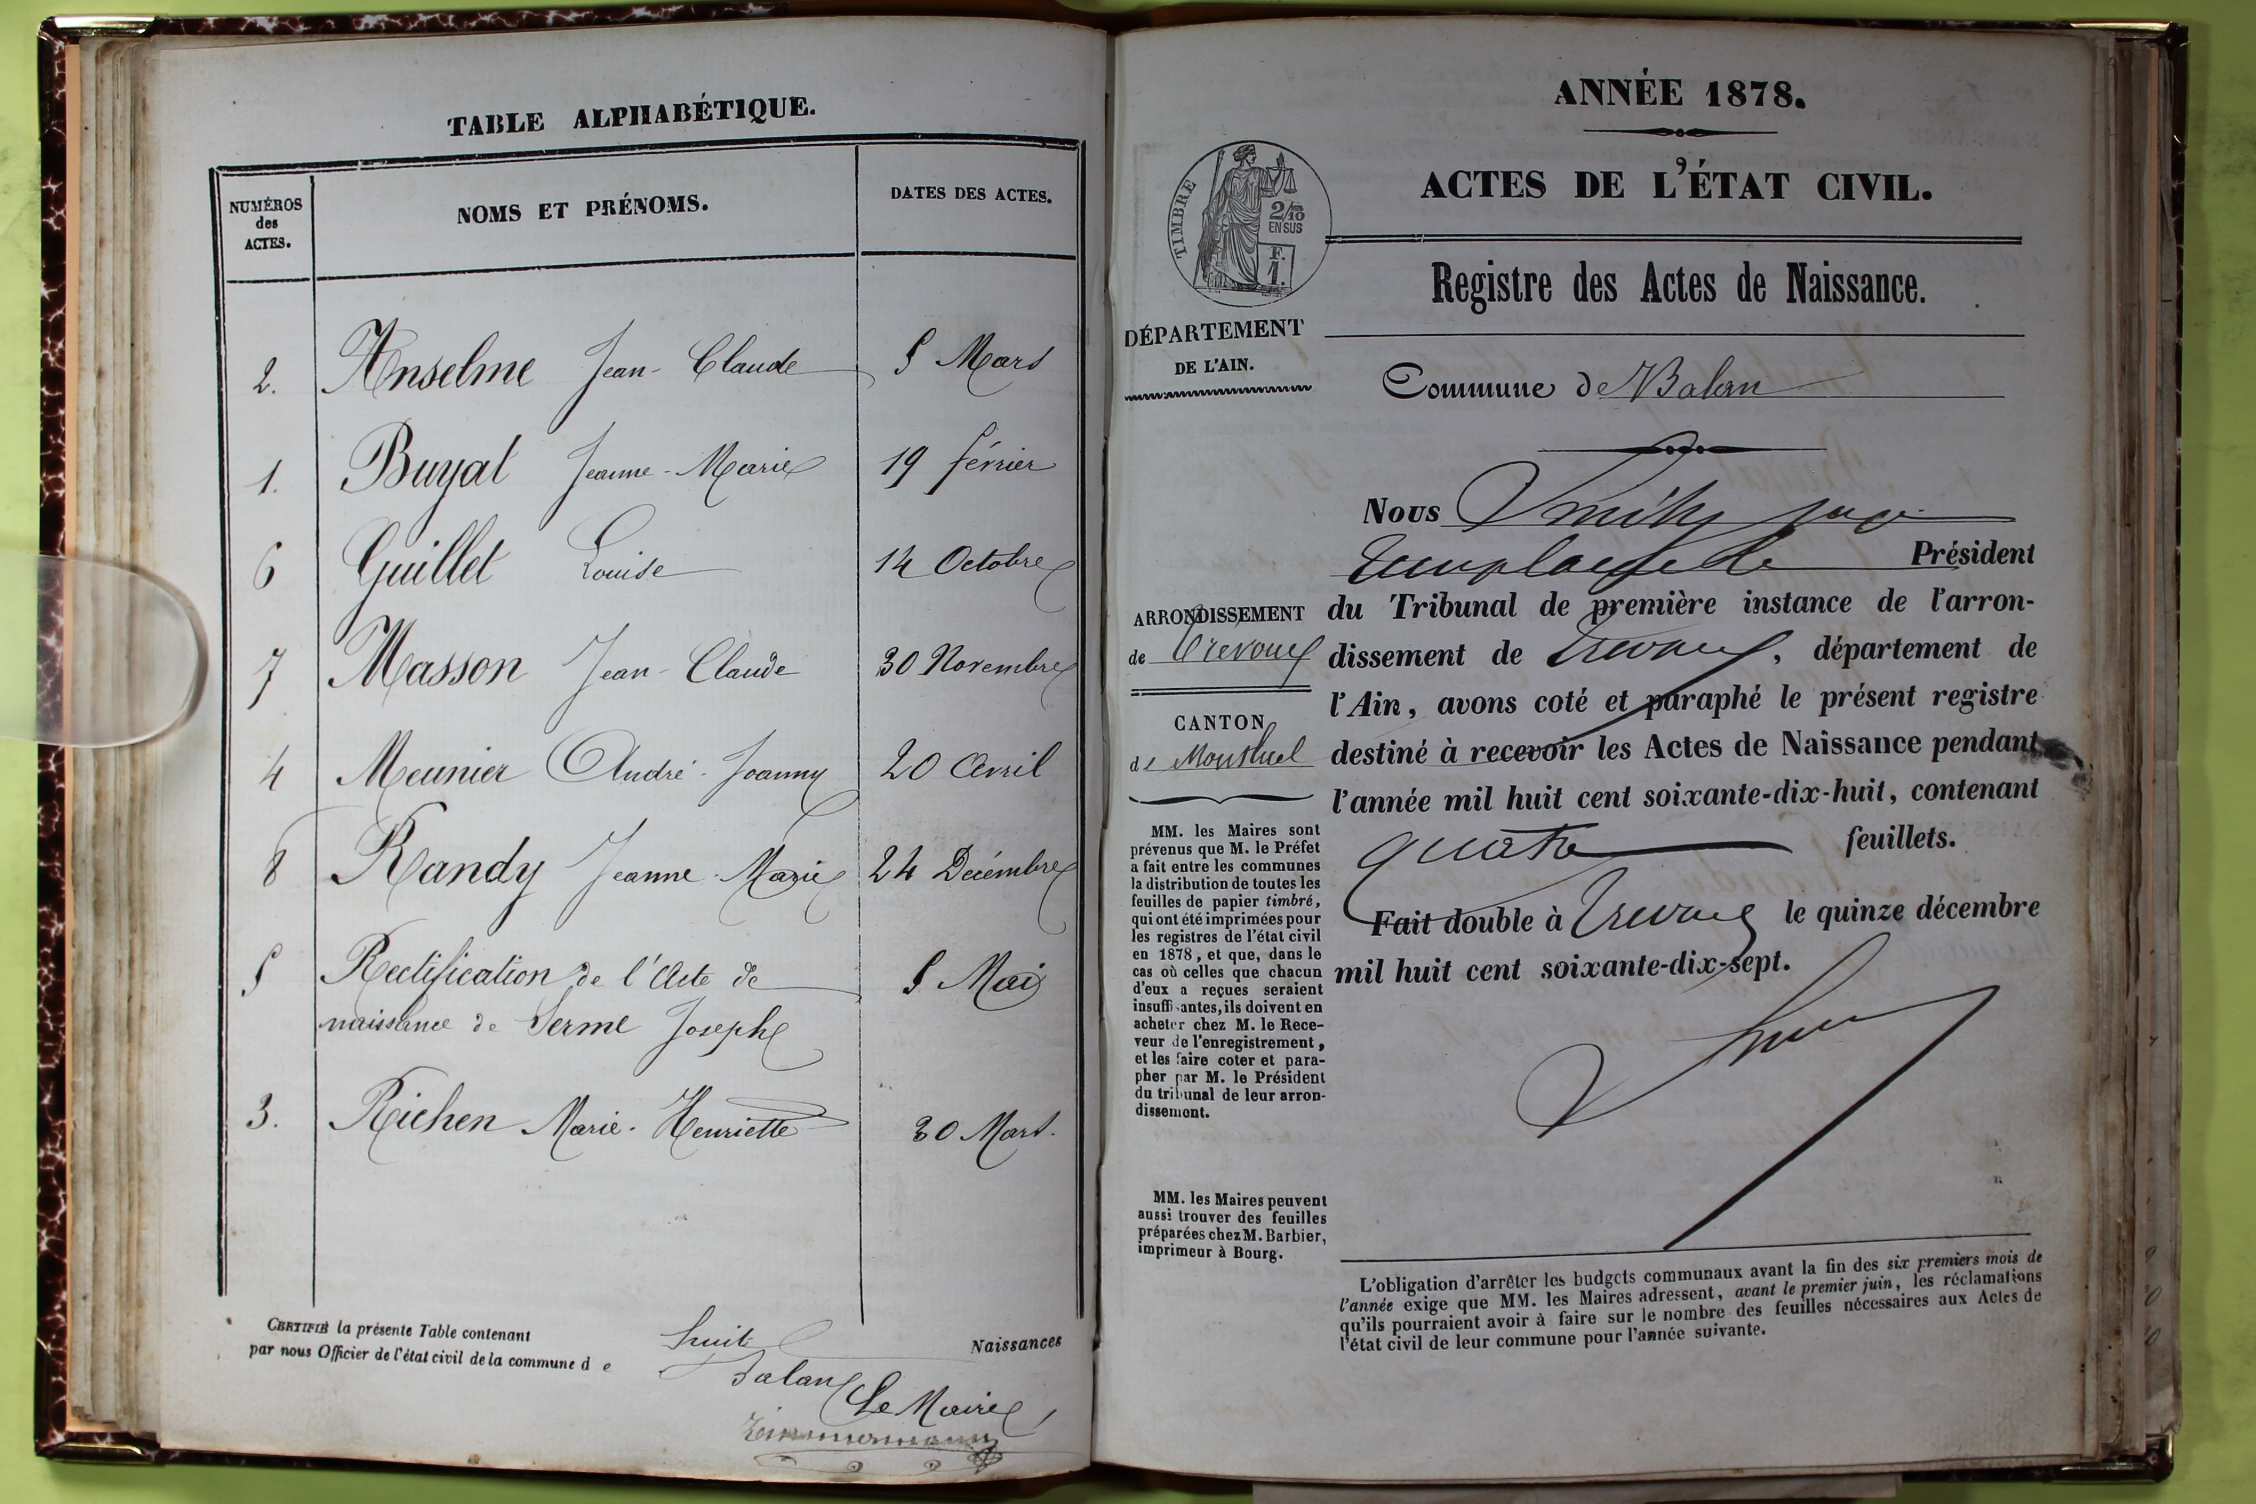 TABLE ALPHABÉTIQUE.
NUMÉROS
des
ACTES.
NOMS ET PRÉNOMS.
DATES DES ACTES.
2. Anselme Jean-Claude 5 Mars
1. Buyat Jeanne-Marie 19 février
6 Guillet Louise 14 Octobre
7 Masson Jean-Claude 30 Novembre
4 Meunier André-Joanny 20 Avril
8 Randy Jeanne-Marie 24 Décembre
5 Rectification de l'Acte de 5 Mai
naissance de Serme Joseph
3. Richen Marie-Henriette 30 Mars.
CERTIFIÉ la présente Table contenant huit Naissances
par nous Officier de l'état civil de la commune de Balan
Le Maire,
Zimmermann
ANNÉE 1878.
ACTES DE L'ÉTAT CIVIL.
TIMBRE
2/10
EN SUS
F.
1.
Registre des Actes de Naissance.
DÉPARTEMENT
DE L'AIN.
Commune de Balan
ARRONDISSEMENT
de Trévoux
CANTON
de Montluel
MM. les Maires sont
prévenus que M. le Préfet
a fait entre les communes
la distribution de toutes les
feuilles de papier timbré,
qui ont été imprimées pour
les registres de l'état civil
en 1878, et que, dans le
cas où celles que chacun
d'eux a reçues seraient
insuffisantes, ils doivent en
acheter chez M. le Rece-
veur de l'enregistrement,
et les faire coter et para-
pher par M. le Président
du tribunal de leur arron-
dissement.
MM. les Maires peuvent
aussi trouver des feuilles
préparées chez M. Barbier,
imprimeur à Bourg.
Nous juge
Président
du Tribunal de première instance de l'arron-
dissement de Trévoux, département de
l'Ain, avons coté et paraphé le présent registre
destiné à recevoir les Actes de Naissance pendant
l'année mil huit cent soixante-dix-huit, contenant
quatre feuillets.
Fait double à Trévoux le quinze décembre
mil huit cent soixante-dix-sept.
L'obligation d'arrêter les budgets communaux avant la fin des six premiers mois de
l'année exige que MM. les Maires adressent, avant le premier juin, les réclamations
qu'ils pourraient avoir à faire sur le nombre des feuilles nécessaires aux Actes de
l'état civil de leur commune pour l'année suivante.